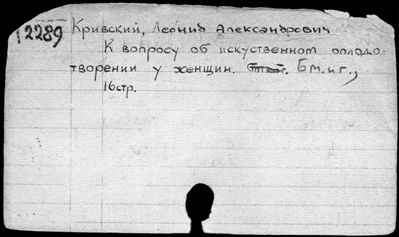 12289
Кривский, Леонид Александрович
К вопросу об искуственном оплодо-
творении у женщин. Б.м.и г.,
16стр.